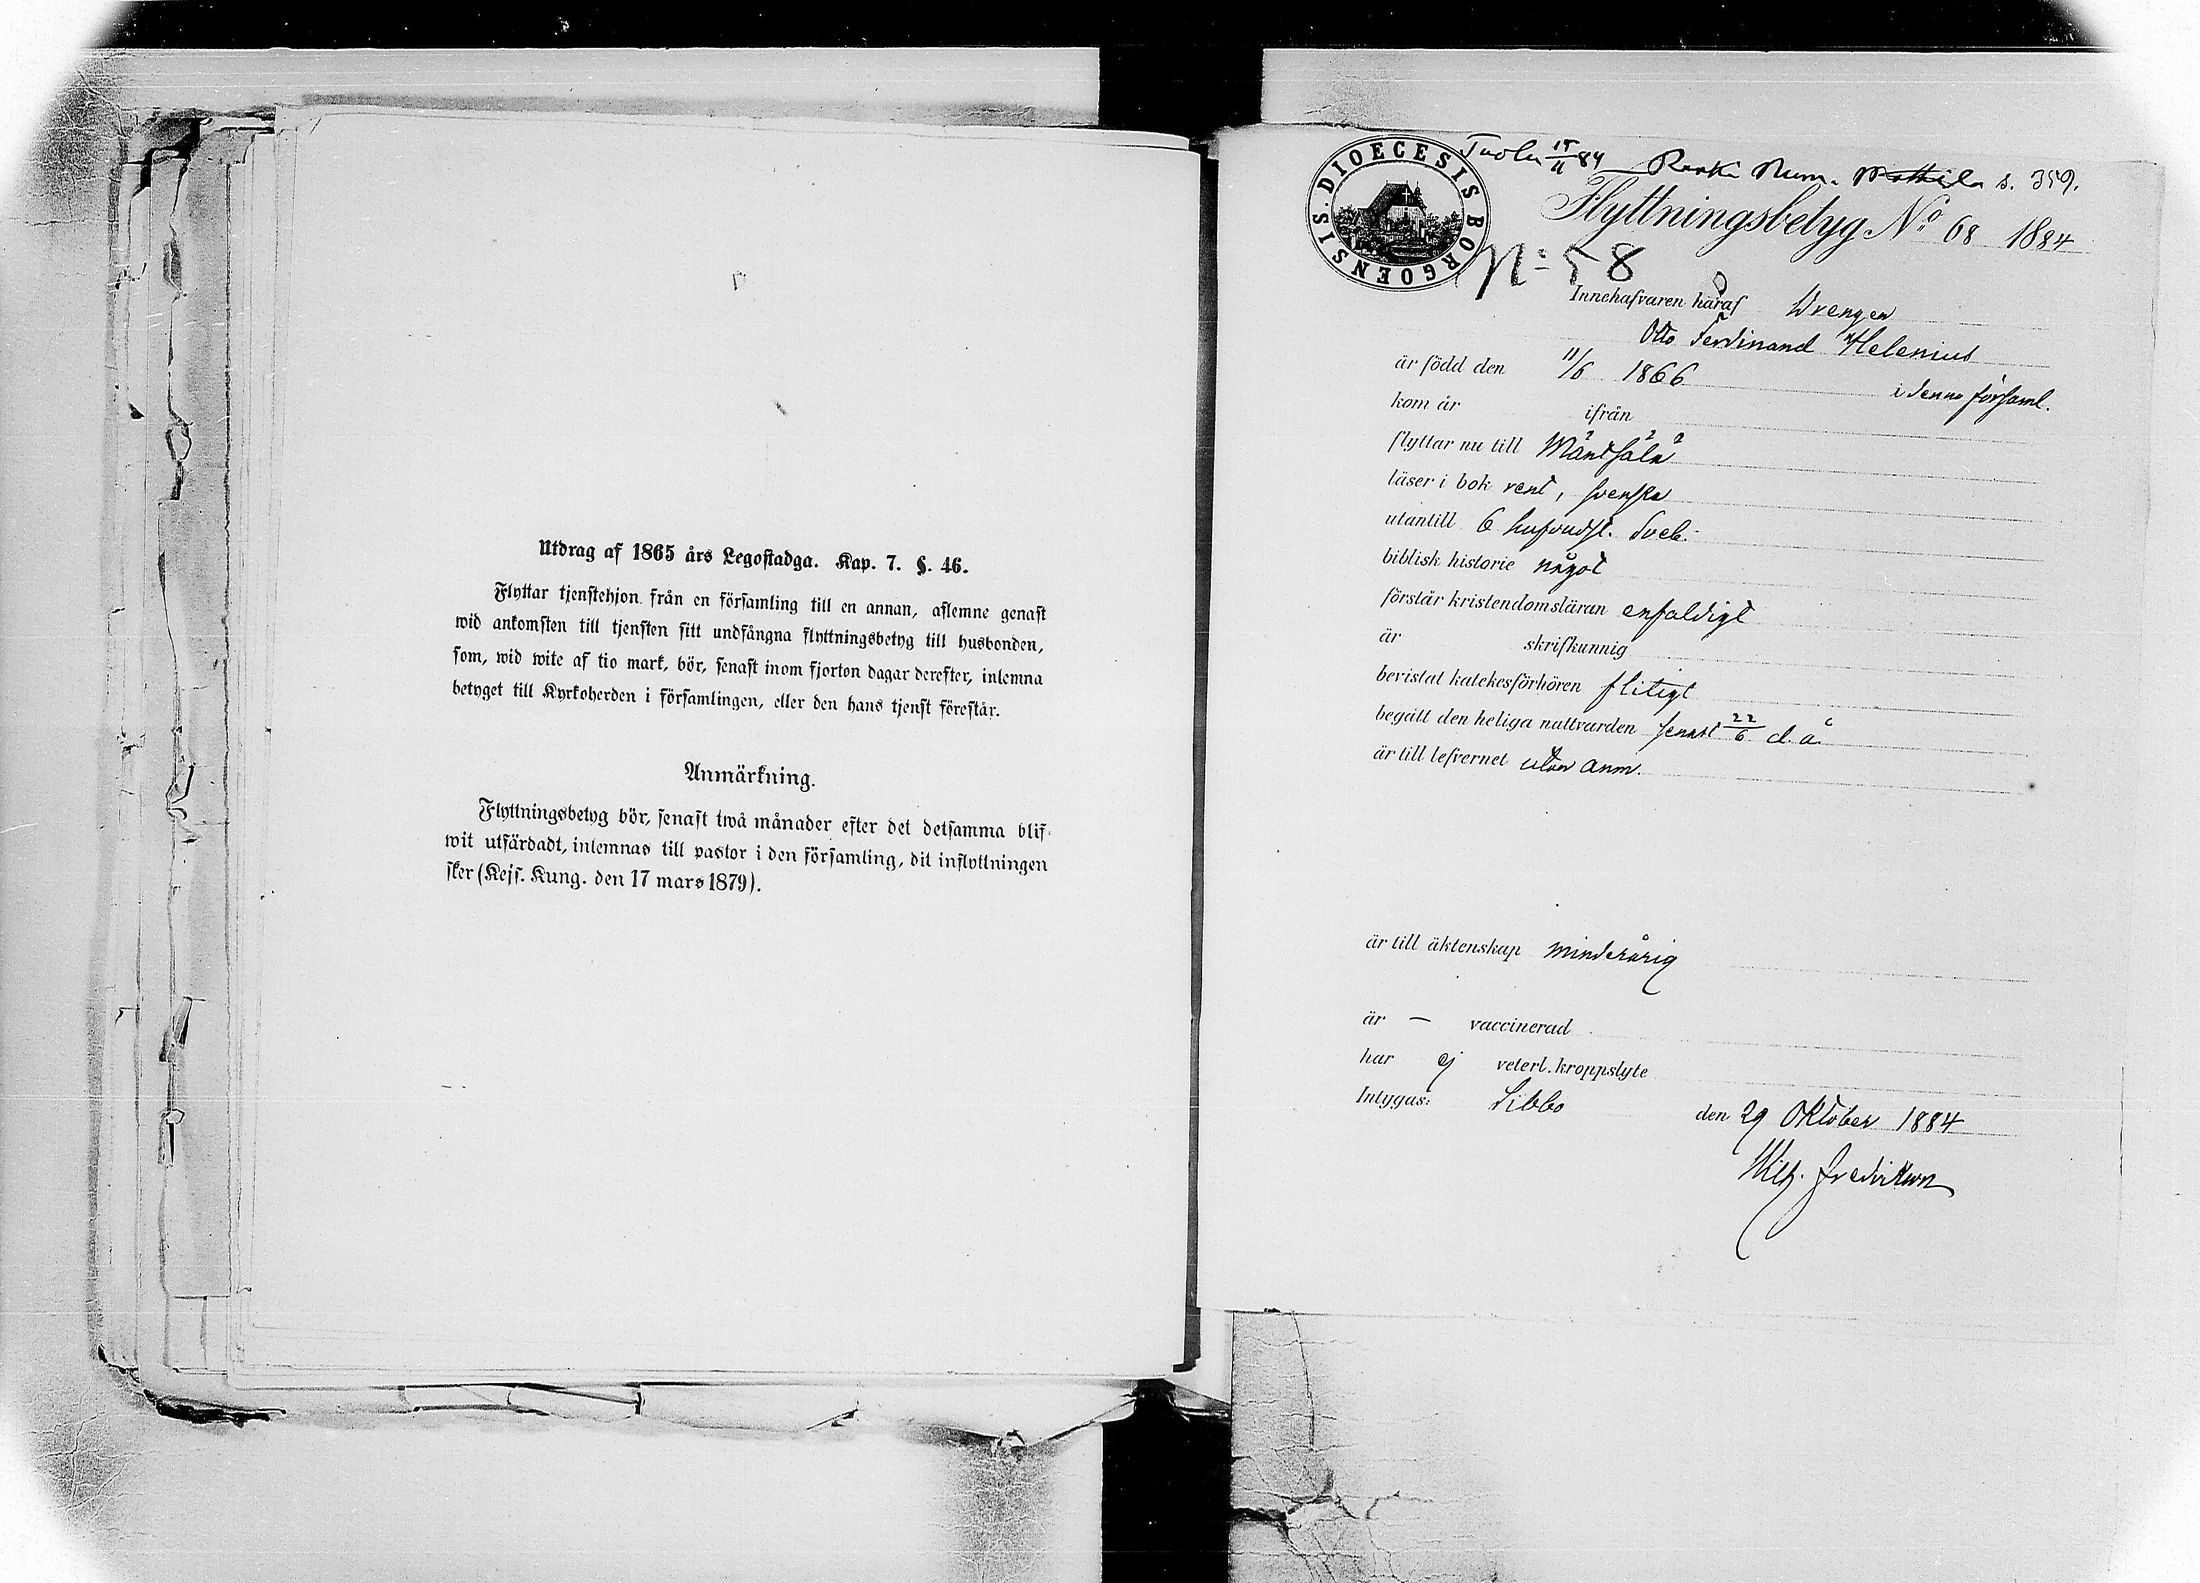 Utdrag af 1865 års Legostadga. Kap. 7. §. 46.
Flyttar tjenstehjon från en församling till en annan, aflemne genast
wid ankomsten till tjensten sitt undfångna flyttningsbetyg till husbonden,
som, wid wite af tio mark, bör, senast inom fjorton dagar derefter, inlemna
betyget till Kyrkoherden i församlingen, eller den hans tjenst förestår.
Anmärkning.
Flyttningsbetyg bör, senast twå månader efter det detsamma blif-
wit utfärdadt, inlemnas till pastor i den församling, dit inflyttningen
sker (Kejs. Kung. den 17 mars 1879).
DIOECESIS BORGOENSIS.
15/11 84 s. 359.
Flyttningsbetyg No: 68 1884
No 58
Innehafvaren häraf Drengen
Otto Ferdinand Helenius
är född den 11/6 1866 i denna församl.
kom år ifrån
flyttar nu till Mäntsälä
läser i bok rent, svenska
utantill 6 hufvudst. Sveb.
biblisk historie något
förstår kristendomsläran enfaldigt
är skrifkunnig
bevistat katekesförhören flitigt
begått den heliga nattvarden senast 22/6 d. å.
är till lefvernet utan anm.
är till äktenskap minderårig
är — vaccinerad
har ej veterl. kroppslyte
Intygas: Sibbo den 29 Oktober 1884
Wilh. Fredrikson